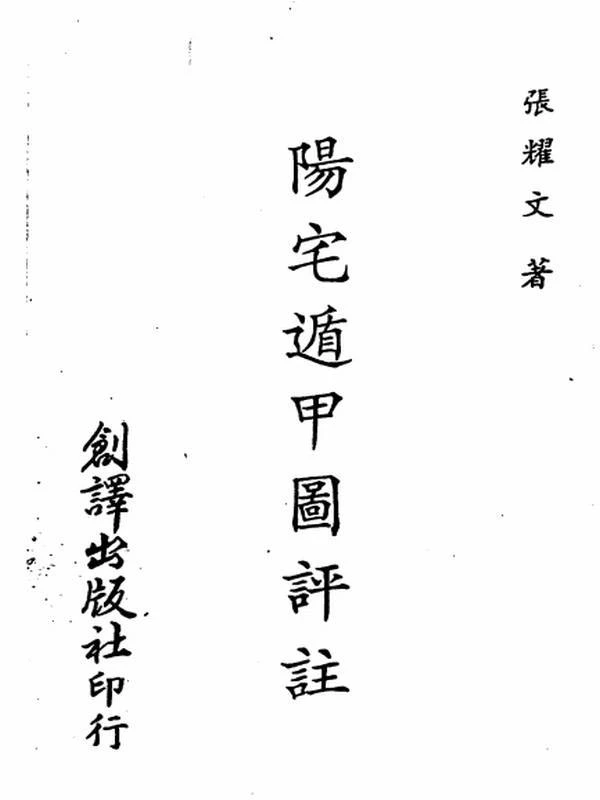 張耀文 著
陽宅遁甲圖評註
創譯出版社印行